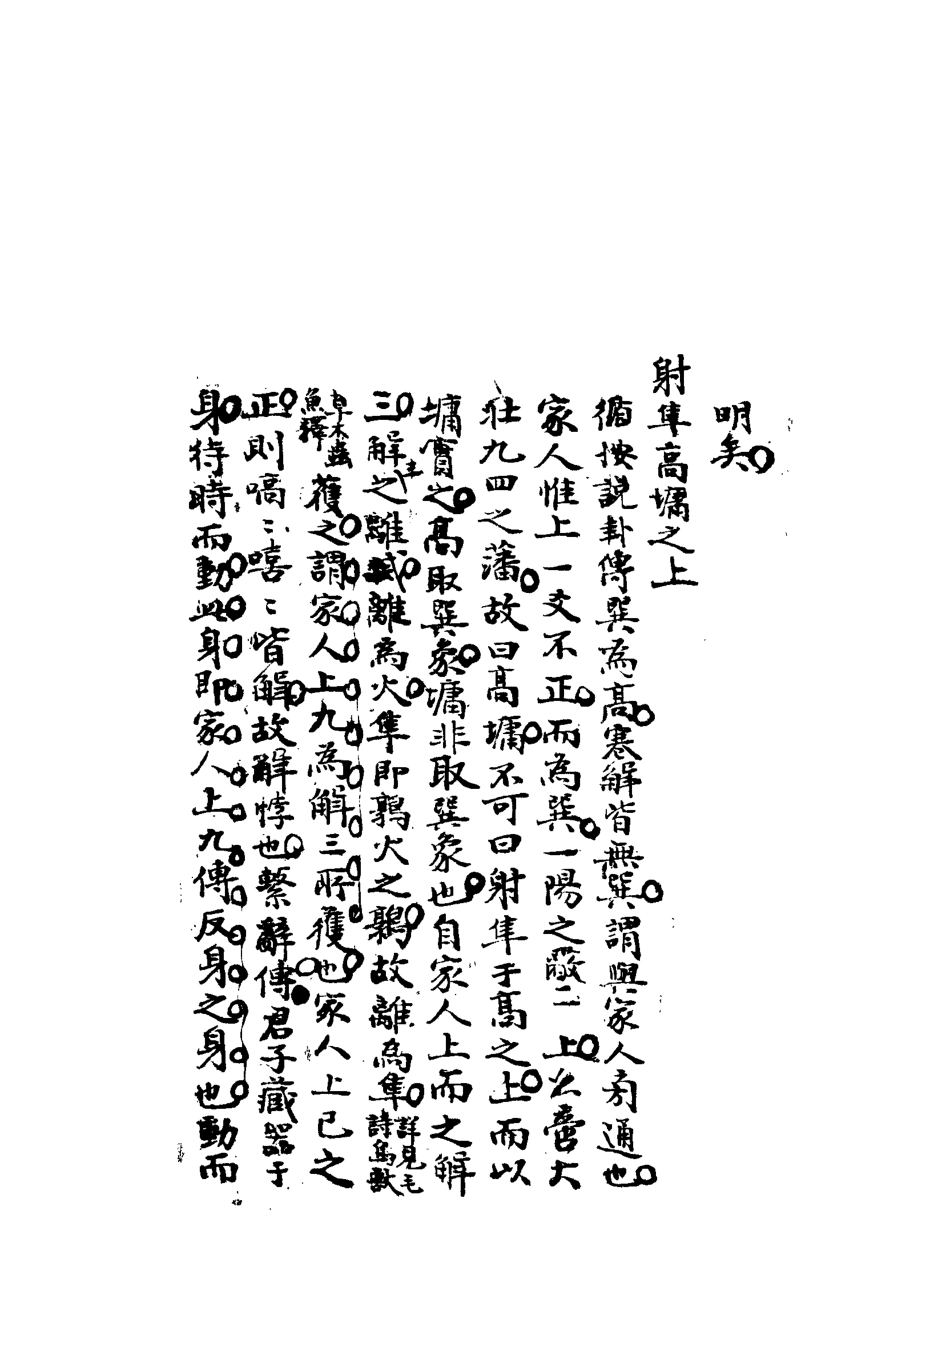 明矣
射隼高墉之上
循按說卦傳巽為高蹇解皆無巽謂與家人旁通也
家人惟上一爻不正而為巽一陽之蔽二上公啻大
壯九四之藩故曰高墉不可曰射隼于高之上而以
墉實之高取巽象墉非取巽象也自家人上而之解
三解之離離為火隼即鶉火之鶉故離為隼詳見毛詩鳥獸
草木蟲魚釋獲之謂家人上九為解三所獲也家人上已之
正則嗃〻嘻〻皆解故解悖也繫辭傳君子藏器于
身待時而動此身即家人上九傳反身之身也動而